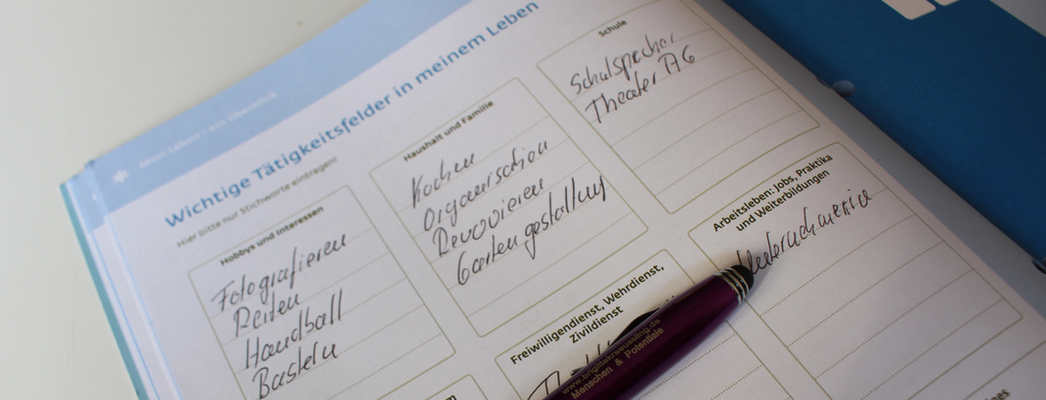 Mein Leben – ein Überblick
Wichtige Tätigkeitsfelder in meinem Leben
Hier bitte nur Stichworte eintragen!
Hobbys und Interessen
Fotografieren
Reiten
Handball
Basteln
Haushalt und Familie
Kochen
Organisation
Renovieren
Gartengestaltung
Schule
Schulsprecher
Theater AG
Freiwilligendienst, Wehrdienst,
Zivildienst
Arbeitsleben: Jobs, Praktika
und Weiterbildungen
Menschen & Potentiale